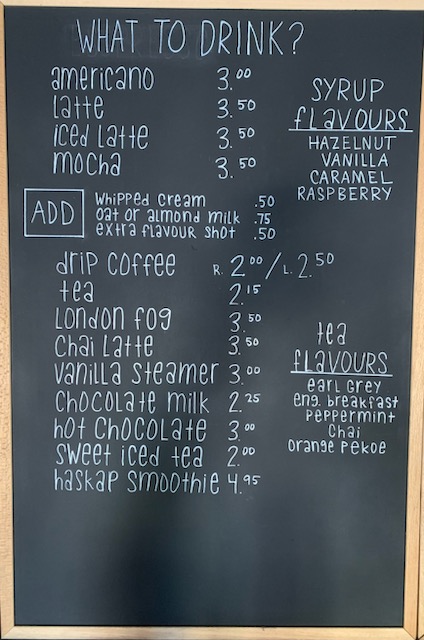 WHAT TO DRINK?
americano 3.00
Latte 3.50
iced Latte 3.50
mocha 3.50
SYRUP
fLAVOURS
HAZELNUT
VANILLA
CARAMEL
RASPBERRY
ADD
whipped cream .50
oat or almond milk .75
extra flavour shot .50
drip coffee R. 2.00/L. 2.50
tea 2.15
London fog 3.50
Chai Latte 3.50
vanilla steamer 3.00
chocolate milk 2.25
hot chocolate 3.00
sweet iced tea 2.00
haskap smoothie 4.95
tea
fLAVOURS
earl Grey
eng. breakfast
peppermint
chai
orange pekoe